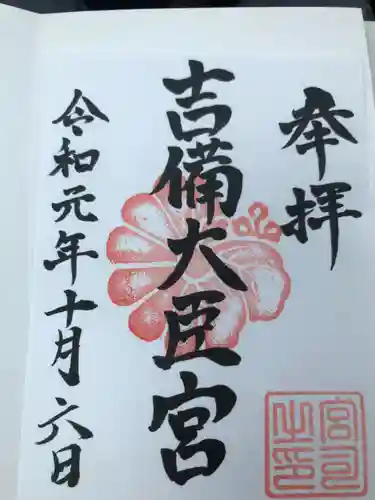 奉拝
吉備大臣宮
令和元年十月六日
宮司之印